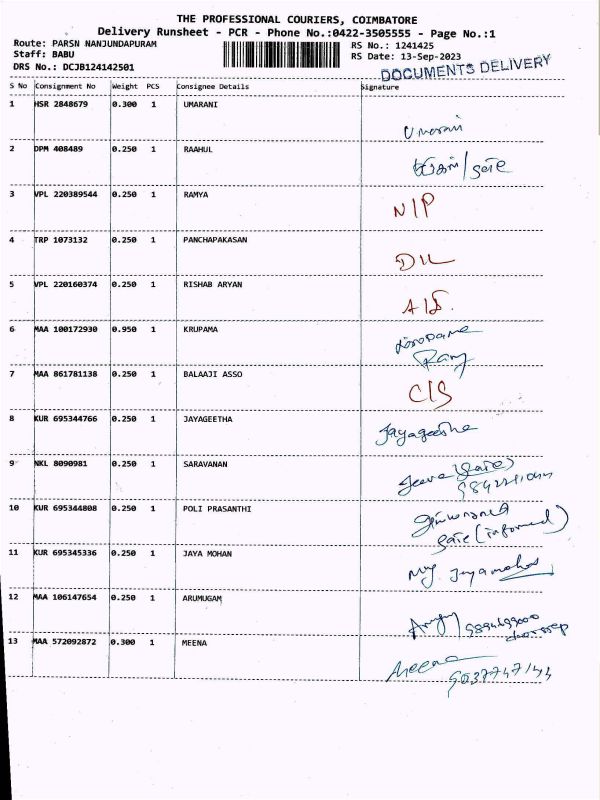 THE PROFESSIONAL COURIERS, COIMBATORE
Delivery Runsheet - PCR - Phone No.:0422-3505555 - Page No.:1
Route: PARSN NANJUNDAPURAM RS No.: 1241425
Staff: BABU RS Date: 13-Sep-2023
DRS No.: DCJB124142501 DOCUMENTS DELIVERY
S No Consignment No Weight PCS Consignee Details Signature
1 HSR 2848679 0.300 1 UMARANI
Umarani
2 DPM 408489 0.250 1 RAAHUL
/gate
3 VPL 220389544 0.250 1 RAMYA
N/P
4 TRP 1073132 0.250 1 PANCHAPAKASAN
D/L
5 VPL 220160374 0.250 1 RISHAB ARYAN
A/S.
6 MAA 100172930 0.950 1 KRUPAMA
7 MAA 861781138 0.250 1 BALAAJI ASSO
C/S
8 KUR 695344766 0.250 1 JAYAGEETHA
Jayageetha
9 NKL 8090981 0.250 1 SARAVANAN
Jeeva (Gate)
10 KUR 695344808 0.250 1 POLI PRASANTHI
Gate (informed)
11 KUR 695345336 0.250 1 JAYA MOHAN
Jayamohan
12 MAA 106147654 0.250 1 ARUMUGAM
13 MAA 572092872 0.300 1 MEENA
Meena